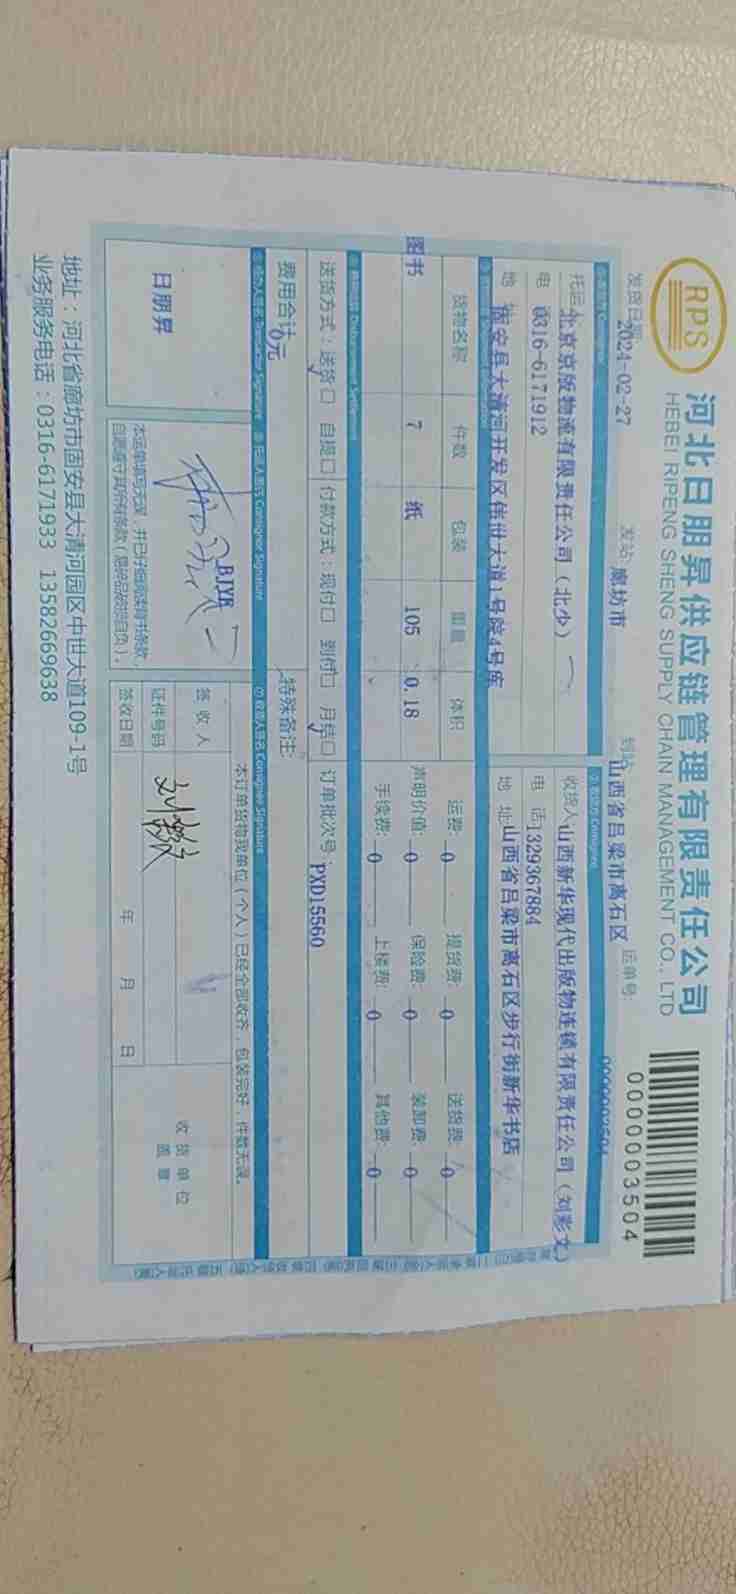 RPS
河北日朋昇供应链管理有限责任公司
HEBEI RIPENG SHENG SUPPLY CHAIN MANAGEMENT CO., LTD
0000003504
发货日期:2024-02-27 发站 廊坊市 到站 山西省吕梁市离石区 运单号: 0000003504
托运人 北京京版物流有限责任公司（北少） 收货人 山西新华现代出版物连锁有限责任公司（刘彩文）
电 0316-6171912 电 话1329367884
地 址 固安县大清河开发区伟世大道1号院4号库 地 址 山西省吕梁市离石区步行街新华书店
货物名称 件数 包装 重量 体积 运费: 0 提货费: 0 送货费: 0
图书 7 纸 105 0.18 声明价值: 0 保险费: 0 装卸费: 0
手续费: 0 上楼费: 0 其他费: 0
送货方式：送货□ 自提□ 付款方式：现付□ 到付□ 月结□ 订单批次号: PXD15560
费用合计 0元 特殊备注:
Transactor Signature Consignor Signature Consignee Signature
日朋昇
BJYB
本订单货物现单位（个人）已经全部收齐，包装完好，件数无误。
签收人
证件号码
签收日期 年 月 日
收货单位
盖章
地址：河北省廊坊市固安县大清河园区中世大道109-1号
业务服务电话：0316-6171933 13582669638